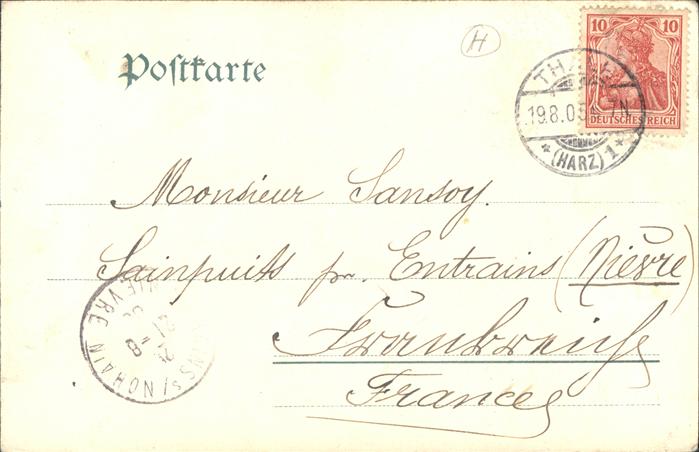 Postkarte
H
10 10
DEUTSCHES REICH
THALE
19.8.05 7N
* (HARZ) 1 *
Monsieur Sansoy.
Sainpuits pr. Entrains (Nièvre)
Frankreich
France
NS s/NOHAIN NIEVRE